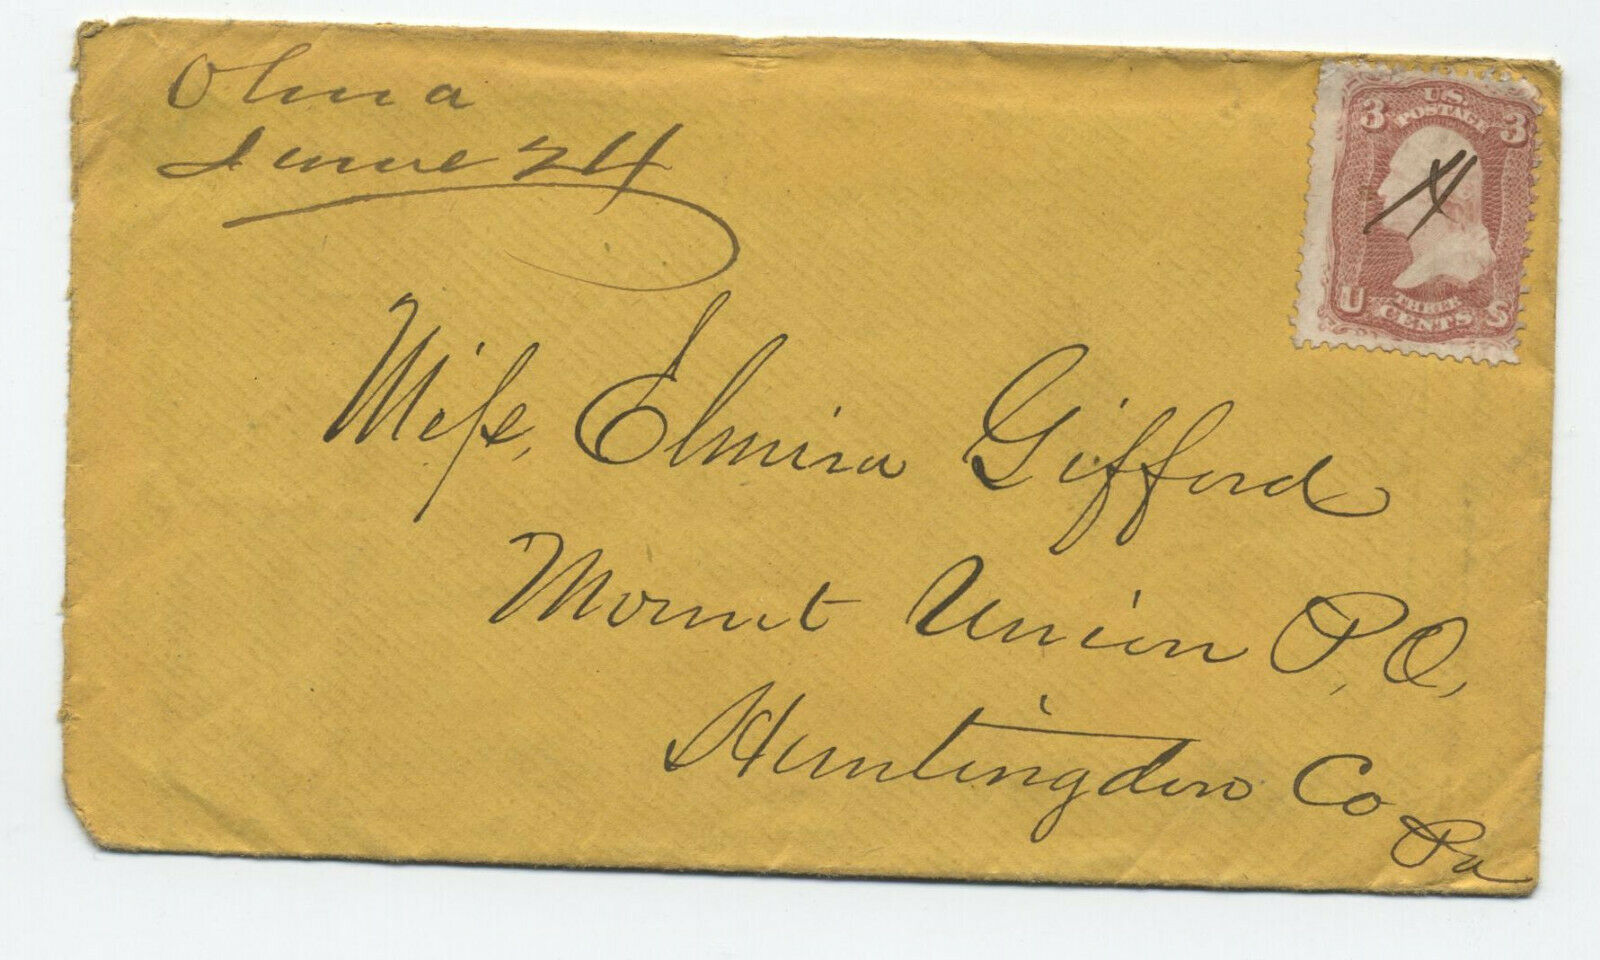 Olma
June 24
3 U.S. POSTAGE 3
U THREE CENTS S
Miss, Elmira Gifford
Mount Union P.O.
Huntingdon Co
Pa